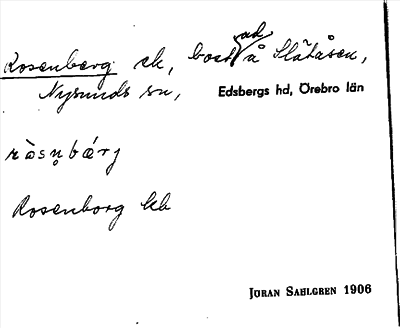 Rosenberg ck, bost ad å Slätåsen,
Nysunds sn, Edsbergs hd, Örebro län
ròsn̥bárj
Rosenborg kb
JÖRAN SAHLGREN 1906